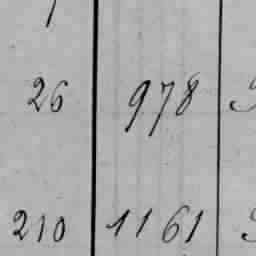 26 978
210 1161